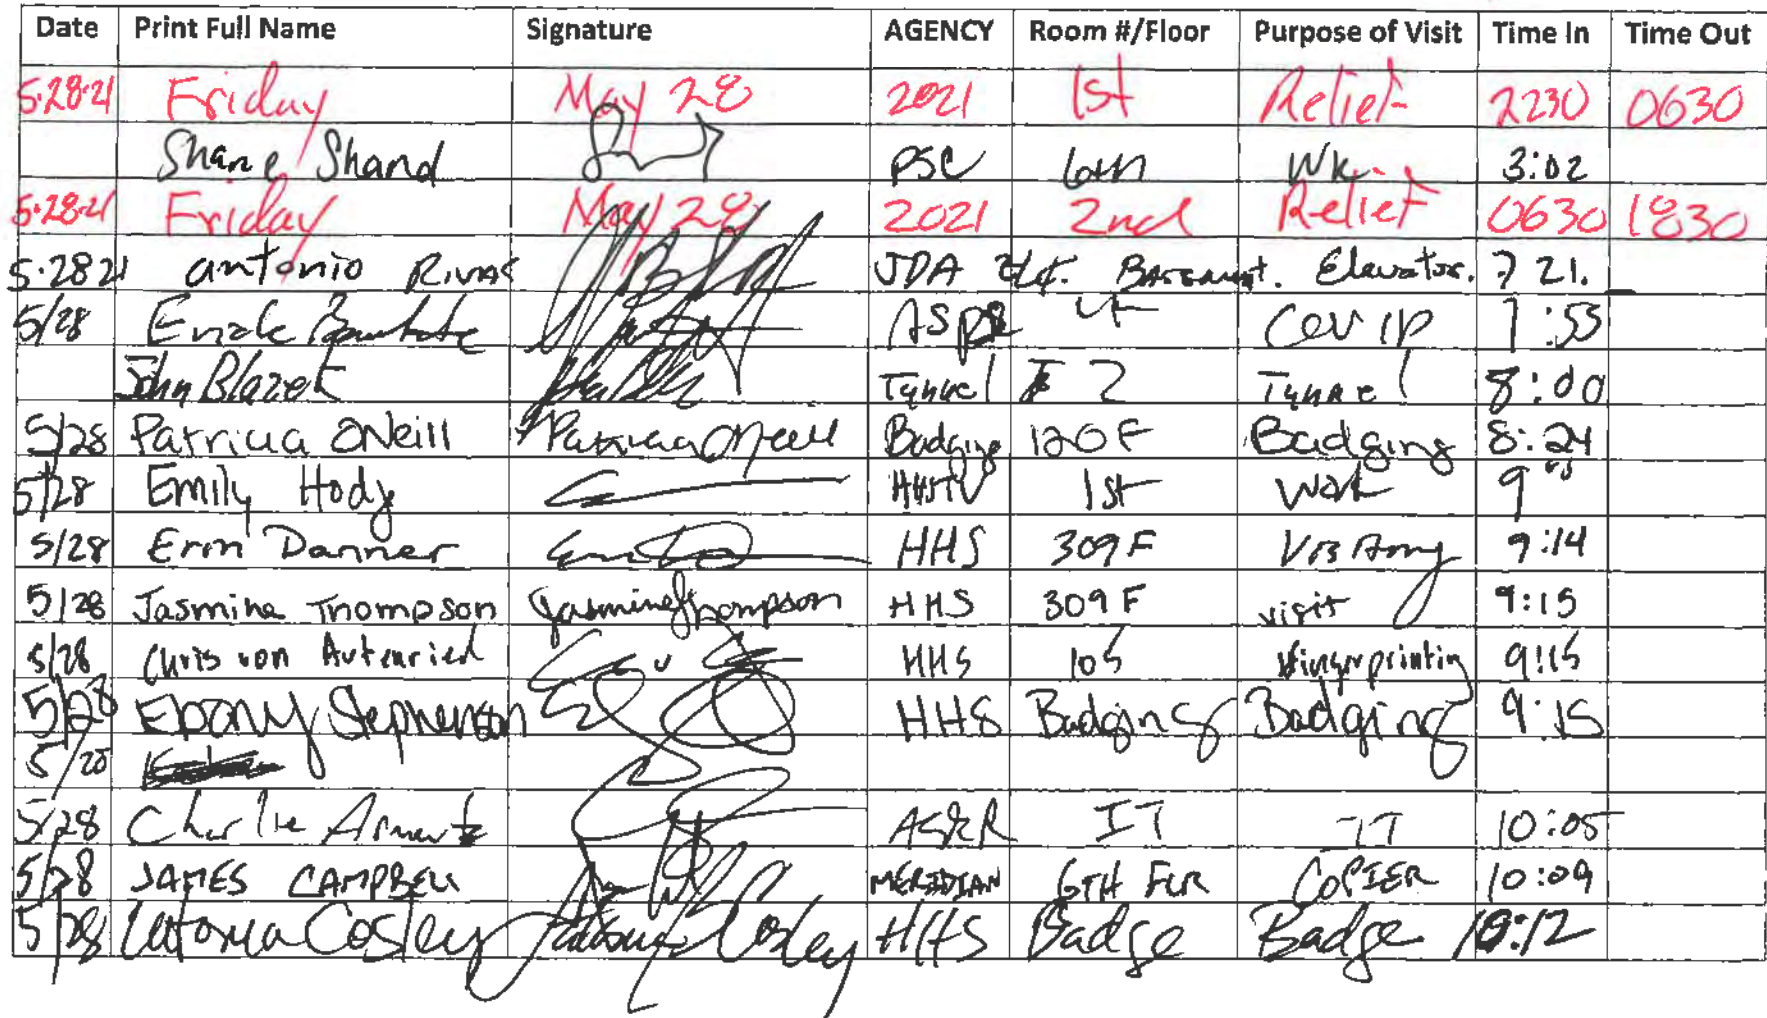 Date Print Full Name Signature AGENCY Room #/Floor Purpose of Visit Time In Time Out
5·28·21 Friday May 28 2021 1st Relief 2230 0630
Shane Shand PSC 6th Wk. 3:02
5·28·21 Friday May 28 2021 2nd Relief 0630 1830
5·28 21 antonio Rivas JDA Basement. Elevator. 7 21.
5/28 ASPR 7:55
John Blazek Tunnel 2 Tunnel 8:00
5/28 Patricia ONeill Patricia ONeill Badging 120F Badging 8:24
5/28 Emily Hody HHSTV 1st Work 9
5/28 Erin Danner HHS 309F 9:14
5/28 Jasmine Thompson Jasmine Thompson HHS 309F visit 9:15
5/28 Chris von Autenried HHS 105 fingerprinting 9:15
5/28 Ebony Stephenson HHS Badging Badging 9:15
5/28
5/28 Charlie ASPR IT IT 10:05
5/28 JAMES CAMPBELL MERIDIAN 6TH FLR COPIER 10:09
5/28 Latonia Cosley Latonia Cosley HHS Badge Badge 10:12